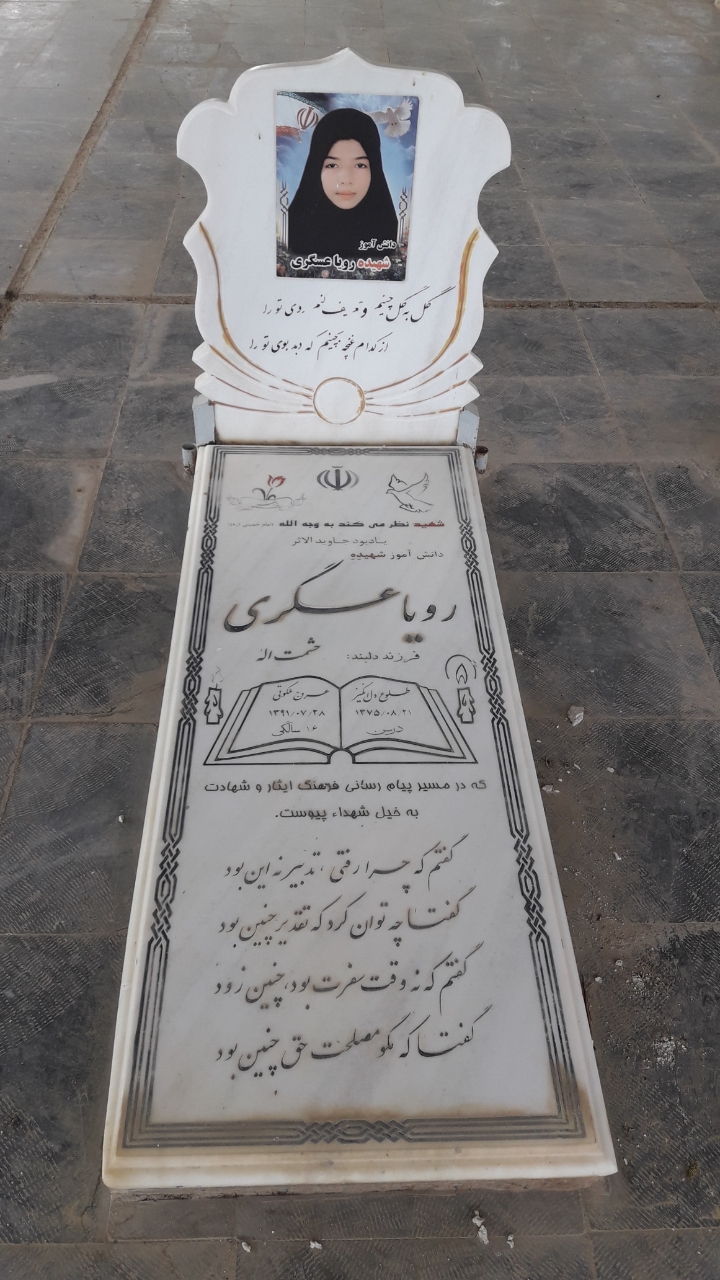 دانش آموز
شهیده رویا عسگری
گل به گل چینم و تعریف کنم روی تو را
از کدام غنچه بچینم که دهد بوی تو را
شهید نظر می کند به وجه الله
یادبود جاوید الاثر
دانش آموز شهیده
رویا عسگری
فرزند دلبند: حشمت اله
طلوع دل انگیز
۱۳۷۵/۰۸/۲۱
عروج ملکوتی
۱۳۹۱/۰۷/۲۸
۱۶ سالگی
که در مسیر پیام رسانی فرهنگ ایثار و شهادت
به خیل شهداء پیوست.
گفتم که چرا رفتی، تدبیر نه این بود
گفتا چه توان کرد که تقدیر چنین بود
گفتم که نه وقت سفرت بود، چنین زود
گفتا که مگو مصلحت حق چنین بود